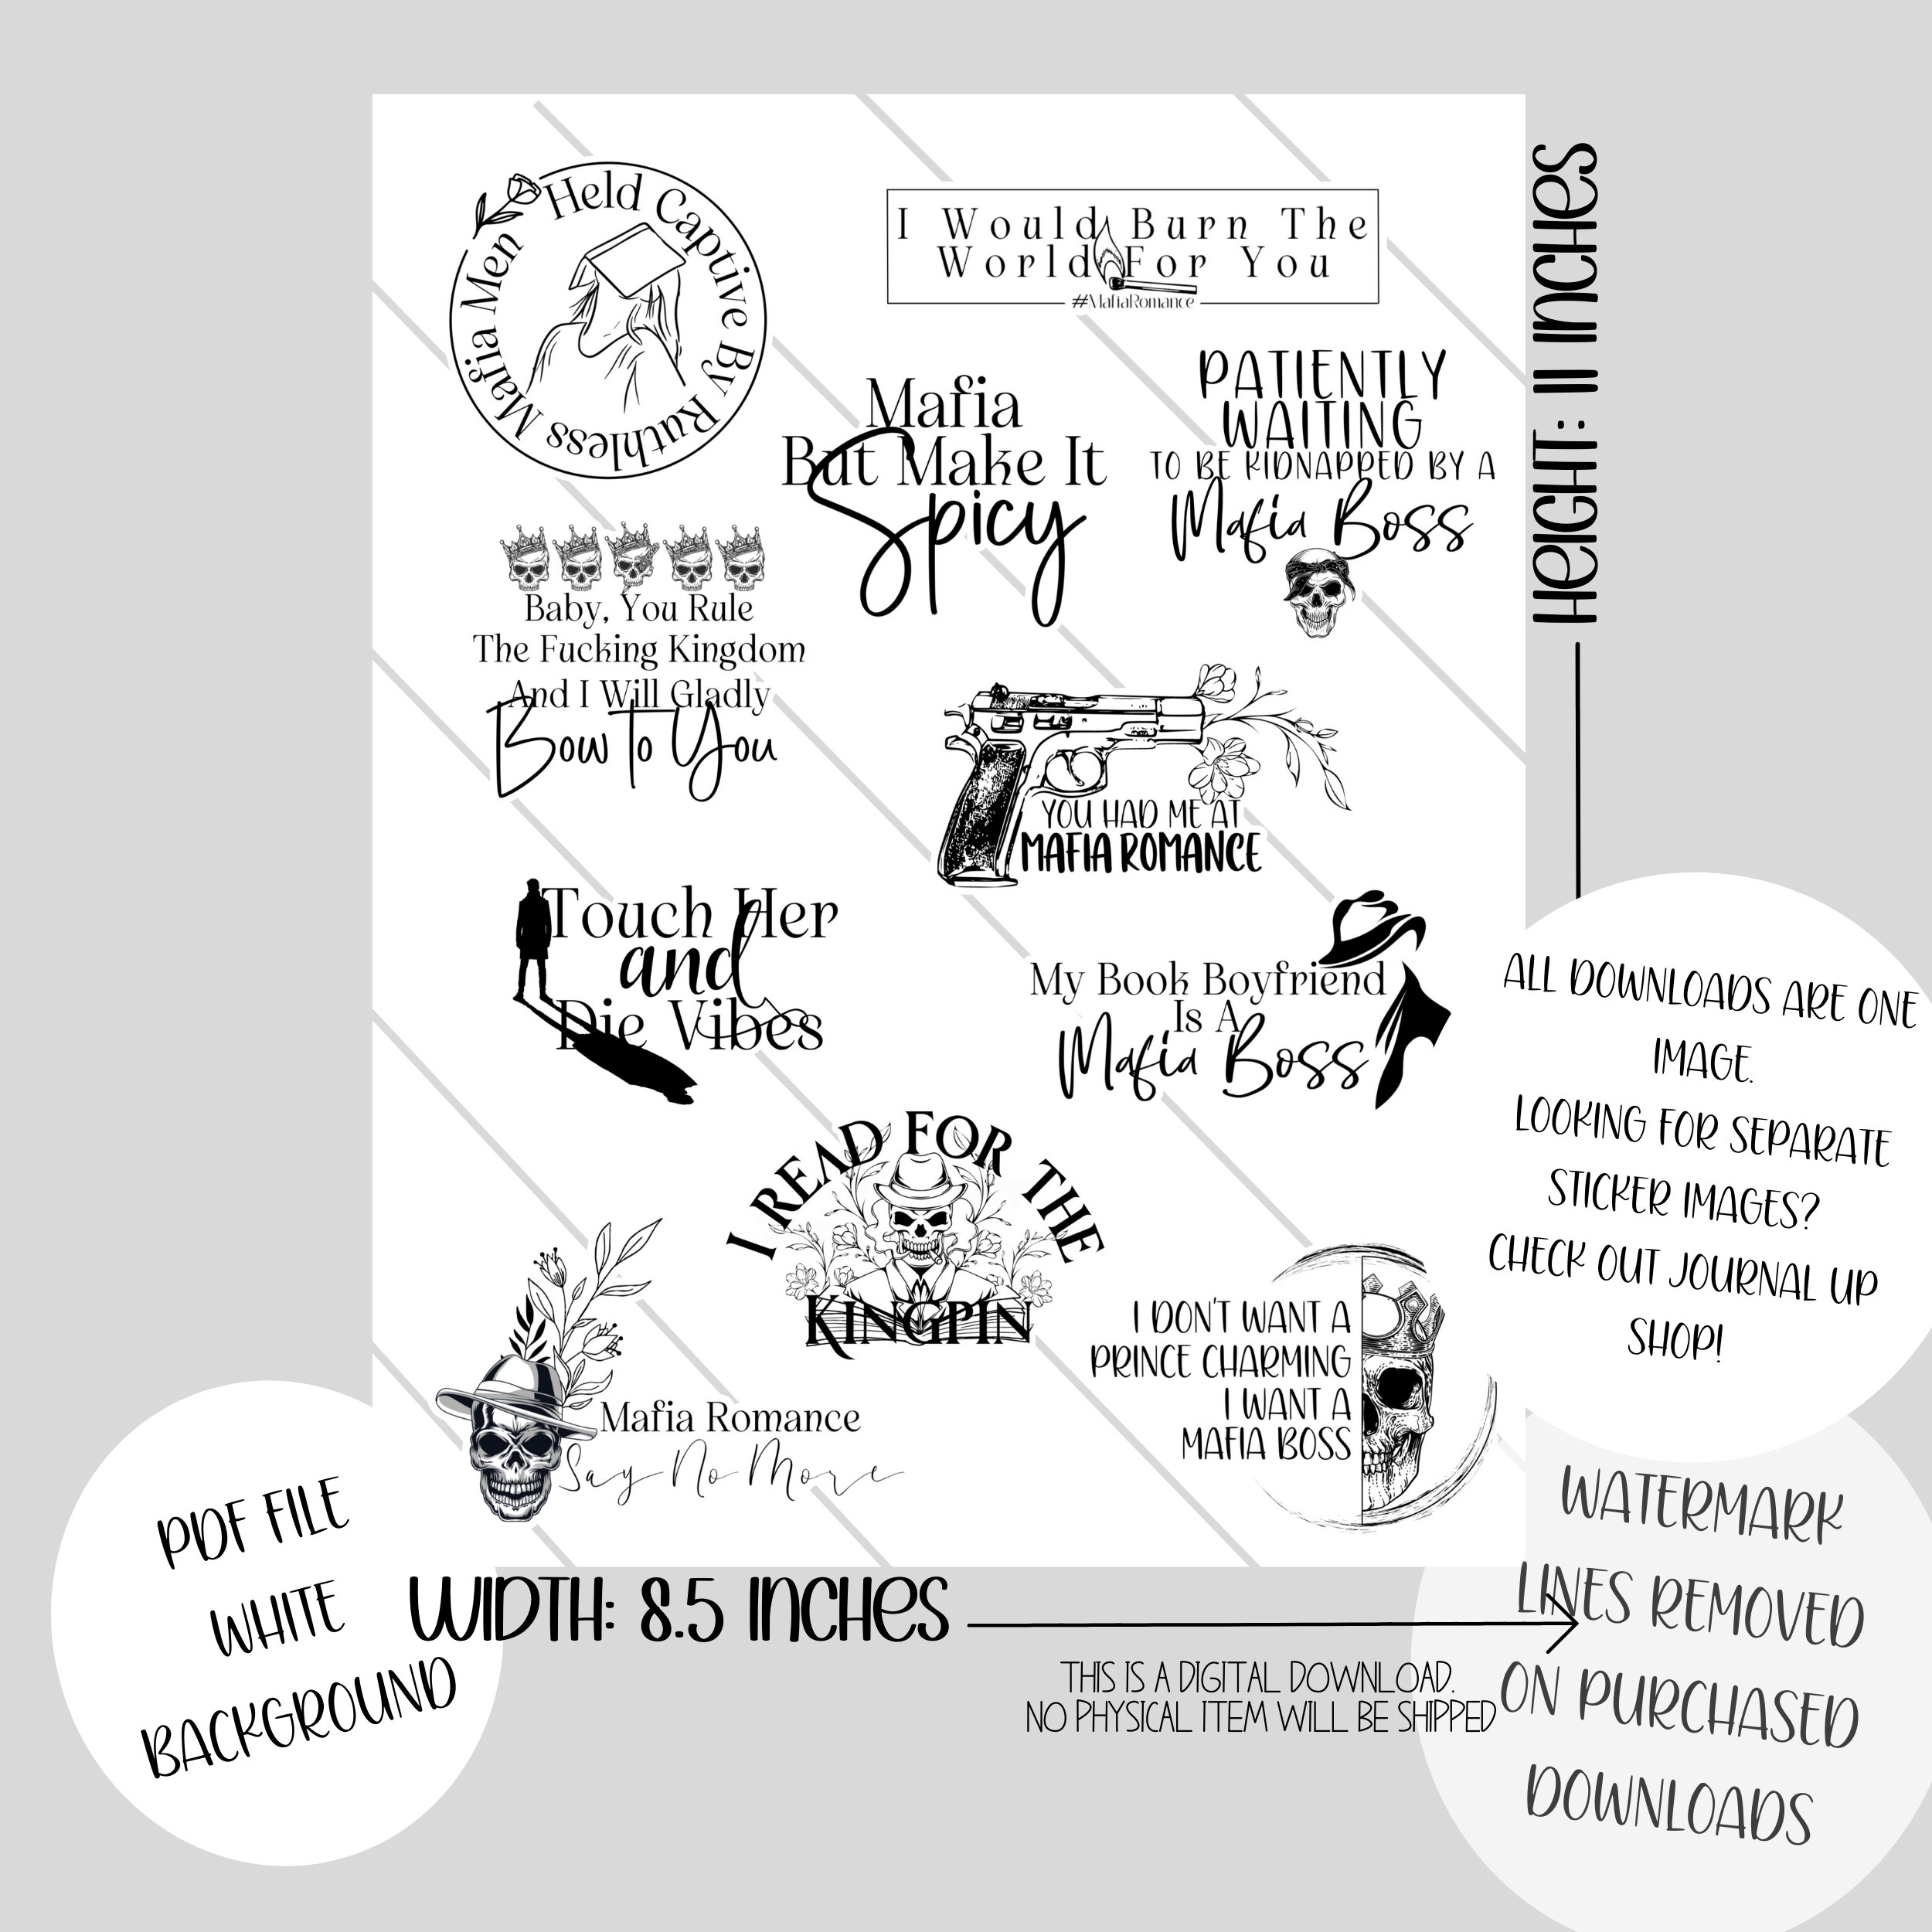 Held Captive By Ruthless Mafia Men
I Would Burn The
World For You
#MafiaRomance
Mafia
But Make It
Spicy
PATIENTLY
WAITING
TO BE KIDNAPPED BY A
Mafia Boss
Baby, You Rule
The Fucking Kingdom
And I Will Gladly
Bow To You
YOU HAD ME AT
MAFIA ROMANCE
Touch Her
and
Die Vibes
My Book Boyfriend
Is A
Mafia Boss
I READ FOR THE
KINGPIN
Mafia Romance
Say No More
I DON'T WANT A
PRINCE CHARMING
I WANT A
MAFIA BOSS
HEIGHT: 11 INCHES
ALL DOWNLOADS ARE ONE
IMAGE.
LOOKING FOR SEPARATE
STICKER IMAGES?
CHECK OUT JOURNAL UP
SHOP!
PDF FILE
WHITE
BACKGROUND
WIDTH: 8.5 INCHES
THIS IS A DIGITAL DOWNLOAD.
NO PHYSICAL ITEM WILL BE SHIPPED
WATERMARK
LINES REMOVED
ON PURCHASED
DOWNLOADS